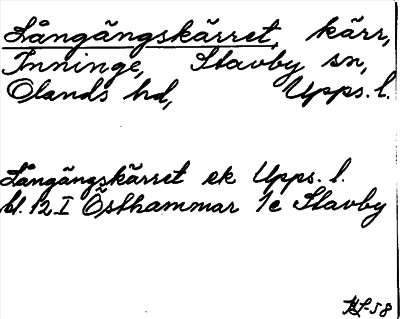 Långängskärret, kärr,
Inninge, Stavby sn,
Olands hd, Upps. l.
Långängskärret ek Upps. l.
bl. 12 I Östhammar 1e Stavby